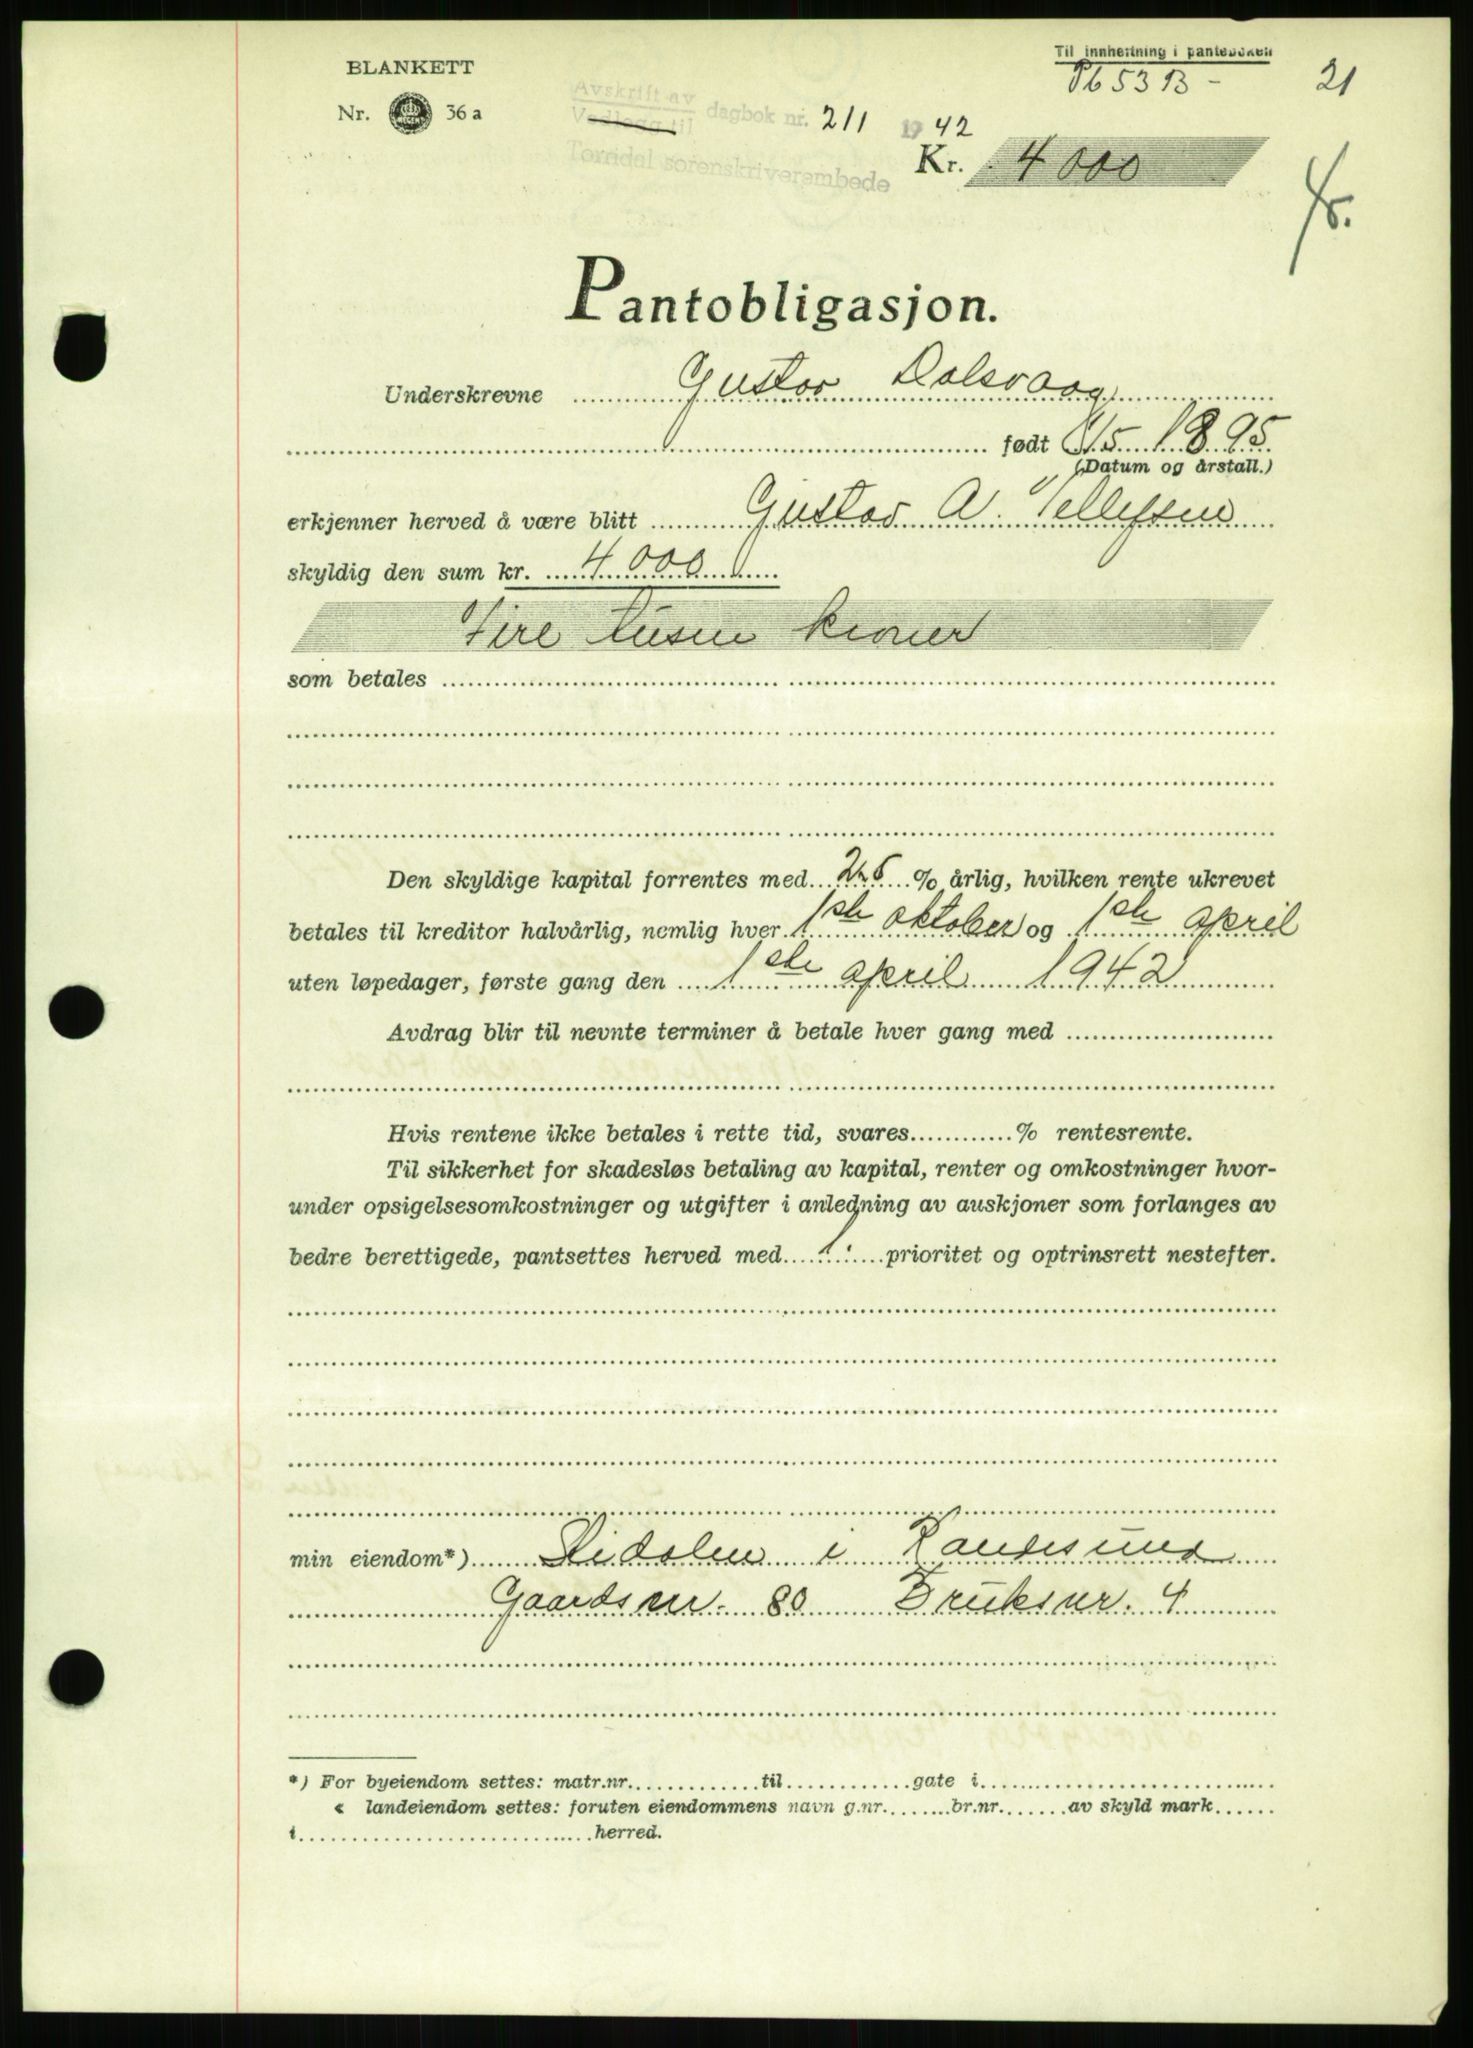 BLANKETT
Nr. 36 a
Til innheftning i panteboken
Pb 53 B -
21
Avskrift av
Vedlegg til dagbok nr. 211 1942
Torridal sorenskriverembede
Kr. 4 000
Pantobligasjon.
Underskrevne Gustav Dalsvaag
født 1895
(Datum og årstall.)
erkjenner herved å være blitt Gustav A. Tellefsen
skyldig den sum kr. 4 000
Fire tusen kroner
som betales
Den skyldige kapital forrentes med % årlig, hvilken rente ukrevet
betales til kreditor halvårlig, nemlig hver 1ste oktober og 1ste april
uten løpedager, første gang den 1ste april 1942
Avdrag blir til nevnte terminer å betale hver gang med
Hvis rentene ikke betales i rette tid, svares % rentesrente.
Til sikkerhet for skadesløs betaling av kapital, renter og omkostninger hvor-
under opsigelsesomkostninger og utgifter i anledning av auskjoner som forlanges av
bedre berettigede, pantsettes herved med 1. prioritet og optrinsrett nestefter.
min eiendom*) i Randesund
Gaardsnr. 80 Bruksnr. 4
*) For byeiendom settes: matr.nr. til gate i
« landeiendom settes: foruten eiendommens navn g.nr. br.nr. av skyld mark
i herred.